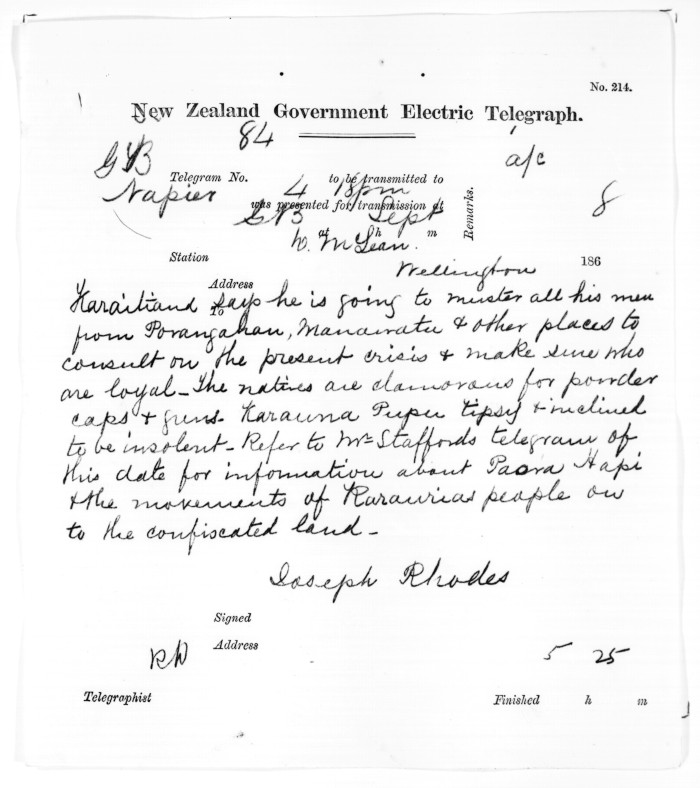 No. 214.
New Zealand Government Electric Telegraph.
84
GB a/c
Telegram No. to be transmitted to
Napier 4 18pm
was presented for transmission at
GB Sept 8
Remarks.
at h m
D. McLean.
Station
Wellington 186
Address
To
Karaitiana says he is going to muster all his men
from Porangahau, Manawatu & other places to
consult on the present crisis & make sure who
are loyal - The natives are clamorous for powder
caps & guns - Karauna Pupu tipsy & inclined
to be insolent - Refer to Mr Staffords telegram of
this date for information about Paora Hapi
& the movements of Karaurias people on
to the confiscated land -
Joseph Rhodes
Signed
Address
5 25
Telegraphist Finished h m